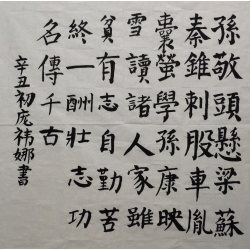 孫敬頭懸梁蘇
秦錐刺股車胤
囊螢學孫康映
雪讀諸人家雖
貧有志自勤苦
終一酬壯志功
名傳千古
辛丑初庞祎娜書